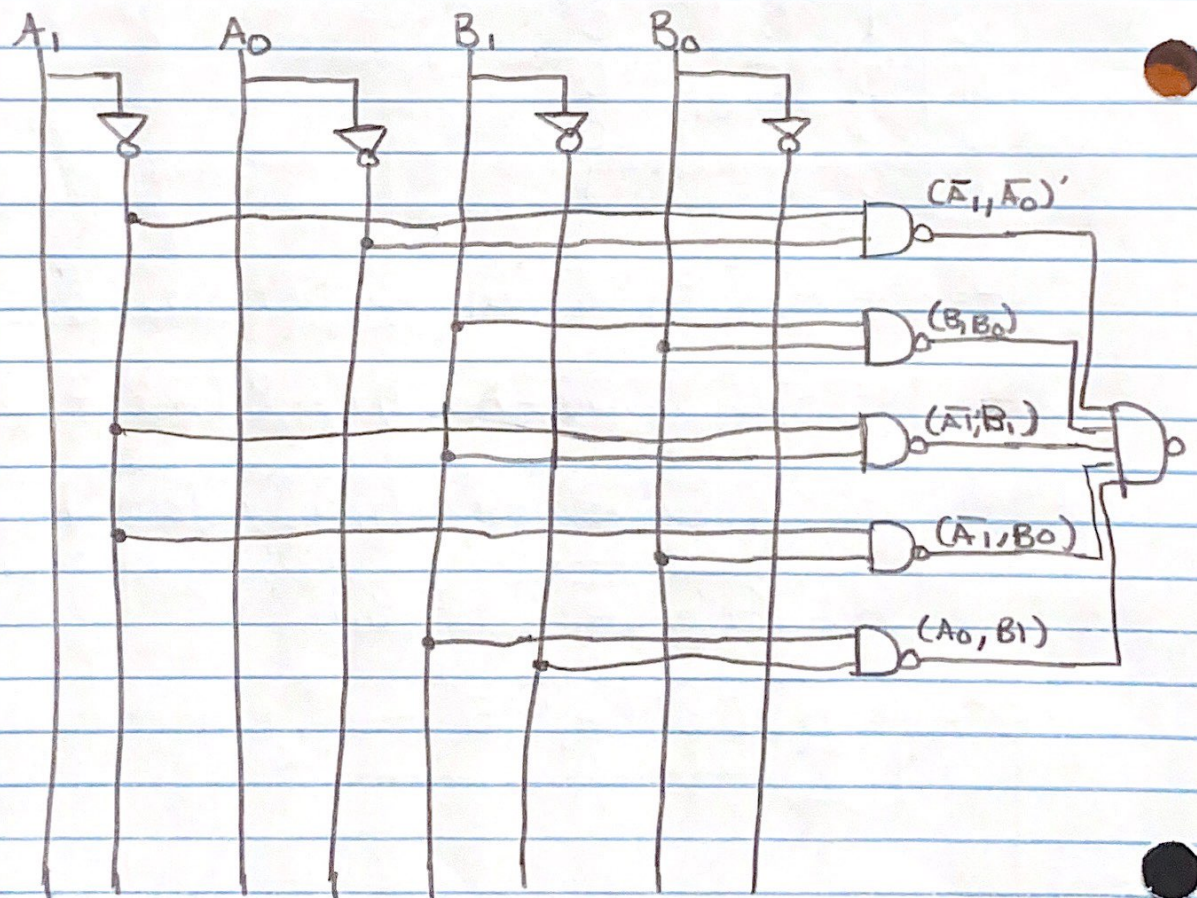 A₁ A₀ B₁ B₀
(A̅₁, A̅₀)'
(B₁B₀)
(A̅₁, B̅₁)
(A̅₁, B₀)
(A₀, B1)